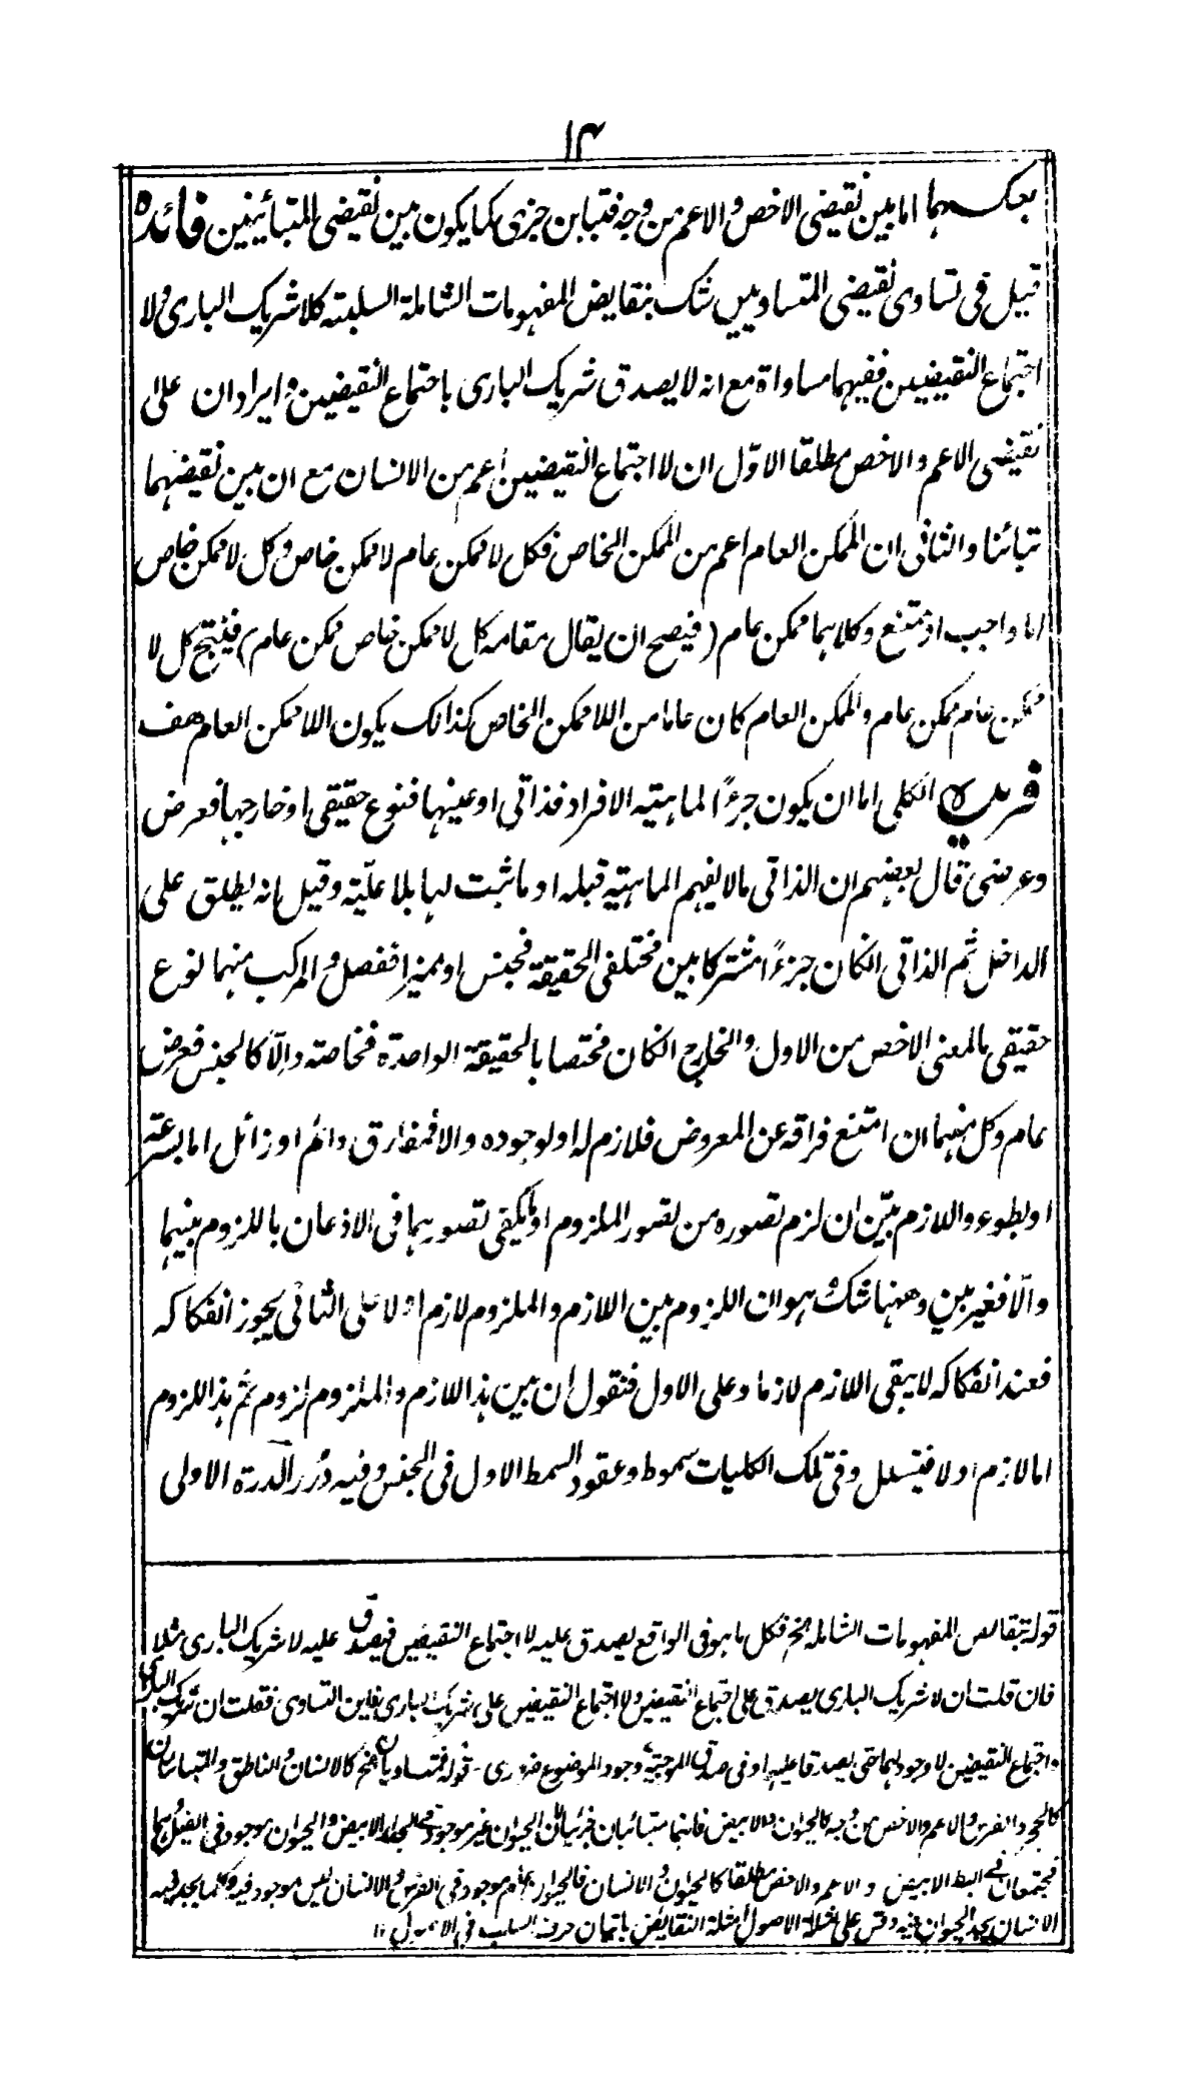 ١٣
بعكسهما اما بين نقيضى الاخص والاعم من وجه فتباين جزى كما يكون بين نقيضى المتبائنين فائده
قيل فى تساوى نقيضى المتساويين شك بنقايض المفهومات الشاملة السلبية كلا شريك البارى ولا
اجتماع النقيضين ففيهما مساواة مع انه لا يصدق شريك البارى باجتماع النقيضين وايرادان على
نقيضى الاعم والاخص مطلقا الاوّل ان لا اجتماع النقيضين اعم من الانسان مع ان بين نقيضهما
تبائنا والثانى ان الممكن العام اعم من الممكن الخاص فكل لا ممكن عام لا ممكن خاص وكل لا ممكن خاص
اما واجب او ممتنع وكلاهما ممكن عام (فيصح ان يقال مقامه كل لا ممكن خاص ممكن عام) فينتج كل لا
ممكن عام ممكن عام والممكن العام كان عاما من اللا ممكن الخاص كذالك يكون اللا ممكن العام هف
فريدة الكلى اما ان يكون جزءًا لماهية الافراد فذاتى او عينها فنوع حقيقى او خارجها فعرض
وعرضى قال بعضهم ان الذاتى مالا يفهم الماهية قبله او ما ثبت لها بلا علّية وقيل انه يطلق على
الداخل ثم الذاتى انكان جزءًا مشتركا بين مختلفى الحقيقة فجنس او مميزا ففصل والمركب منهما نوع
حقيقى بالمعنى الاخص من الاول والخارج انكان مختصا بالحقيقة الواحدة فخاصة والّا كالجنس فعرض
عام وكل منهما ان امتنع فراقه عن المعروض فلازم له او لوجوده والا فمفارق دائم او زائل اما بسرعة
او بطوء واللازم بيّن ان لزم تصوره من تصور الملزوم او يكفى تصورهما فى الاذعان باللزوم بينهما
والّا فغير بين وههنا شك هو ان اللزوم بين اللازم والملزوم لازم او لا على الثانى يجوز انفكاكه
فعند انفكاكه لا يبقى اللازم لازما وعلى الاول فنقول ان بين هذا اللازم والملزوم لزوم ثم هذا اللزوم
اما لازم او لا فيتسلل وفى تلك الكليات سموط وعقود السمط الاول فى الجنس وفيه درر الدرة الاولى
قوله بنقايض المفهومات الشاملة الخ فكل ما هو فى الواقع يصدق عليه لا اجتماع النقيضين فيصدق عليه لا شريك البارى مثلا
فان قلت ان لا شريك البارى يصدق على اجتماع النقيضين ولا اجتماع النقيضين على شريك البارى فاين التساوى فقلت ان شريك البارى
واجتماع النقيضين لا وجود لهما حتى يصدقا عليه او فى صدق الموجبة وجود الموضوع ضرورى - قوله فمتساويان الخ كالانسان والناطق والمتباينان
كالحجر والفرس والاعم والاخص من وجه كالحيوان والابيض فانهما متبائنان جزئيا الحيوان غير موجود فى الجدار الابيض والحيوان موجود فى الفيل
فيجتمعان فى البط الابيض والاعم والاخص مطلقا كالحيوان والانسان فالحيوان عام موجود فى الفرس والانسان ليس موجود فيه وكلما يوجد فيه
الانسان يوجد الحيوان فيه وقس على امثلة الاصول امثلة النقائض باتيان حرف السلب فى الاصول ۱۲